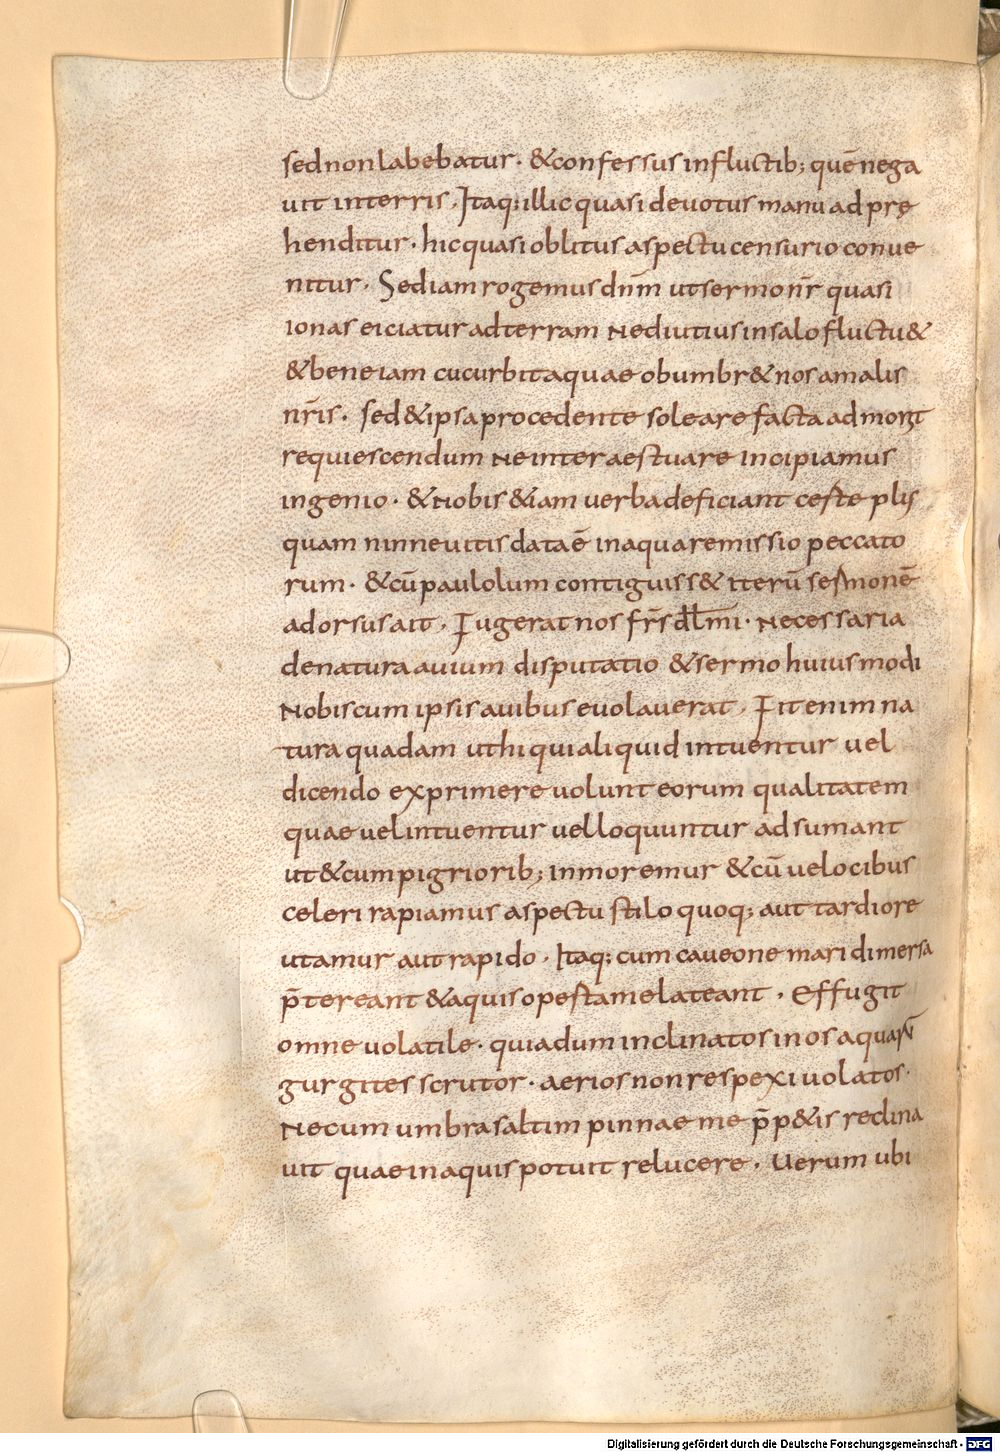 sed non labebatur. & confessus influctib; quē nega
uit interris. Itaq; illic quasi deuotus manu ad prę
henditur. hic quasi oblitus aspectu censurio conue
nitur. Sed iam rogemus dñm ut sermo nr̄ quasi
ionas eiciatur ad terram ne diutius insalo fluctu&
& bene iam cucurbita quae obumbr& nos a malis
nr̄is. sed & ipsa procedente sole arefacta admon&
requiescendum ne inter aestuare incipiamus
ingenio. & nobis &iam uerba deficiant certe plus
quam ninneuitis data ē in aqua remissio peccato
rum. & cū paulolum contiguiss& iterū sermonē
adorsus ait. Fugerat nos fr̄s dll̄mi. necessaria
de natura auium disputatio & sermo huiusmodi
nobiscum ipsis auibus euolauerat. Fit enim na
tura quadam ut hi qui aliquid intuentur uel
dicendo exprimere uolunt eorum qualitatem
quae uel intuentur uel loquuntur adsumant
ut & cum pigriorib; inmoremur & cū uelocibus
celeri rapiamus aspectu stilo quoq; aut tardiore
utamur aut rapido. Itaq; cum caueo ne mari dimersa
p̄tereant & aquis operta me lateant. effugit
omne uolatile. quia dum inclinatos in os aquarū
gurgites scrutor. aerios non respexi uolatos.
Ne cum umbra saltim pinnae me p̄p&is reclina
uit quae in aquis potuit relucere. Uerum ubi
Digitalisierung gefördert durch die Deutsche Forschungsgemeinschaft - DFG